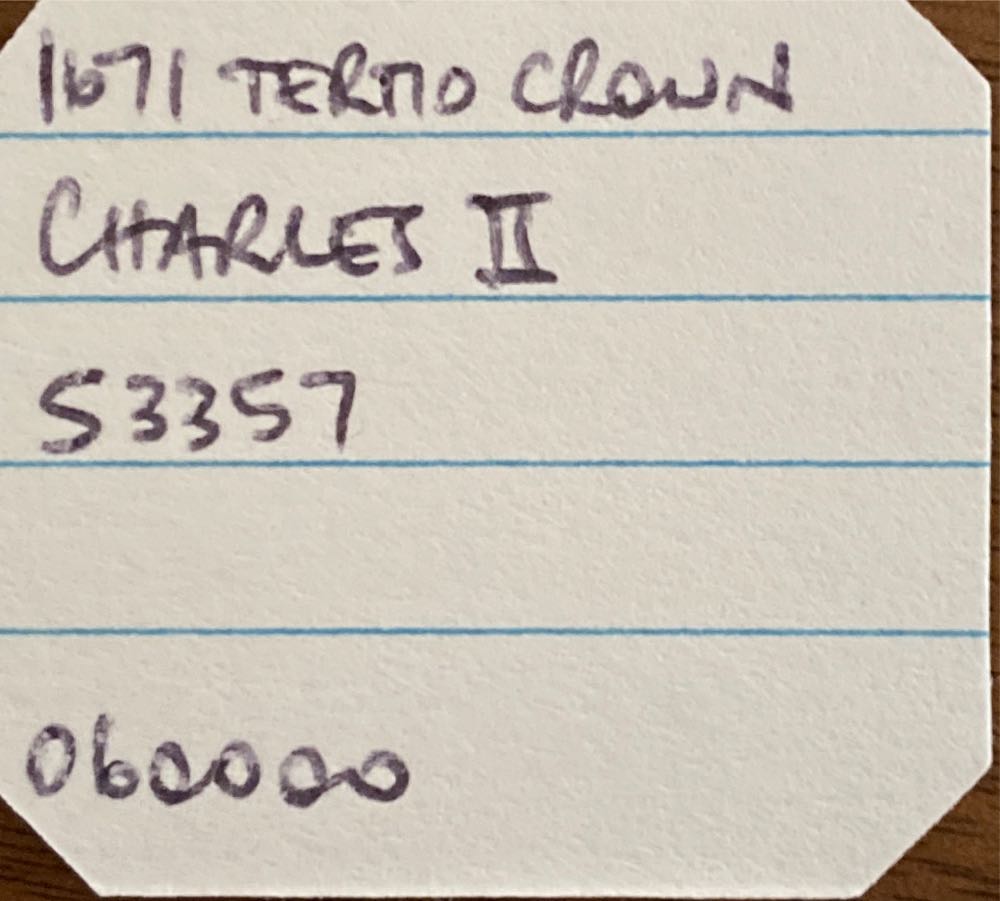 1671 TERTIO CROWN
CHARLES II
S3357
060000